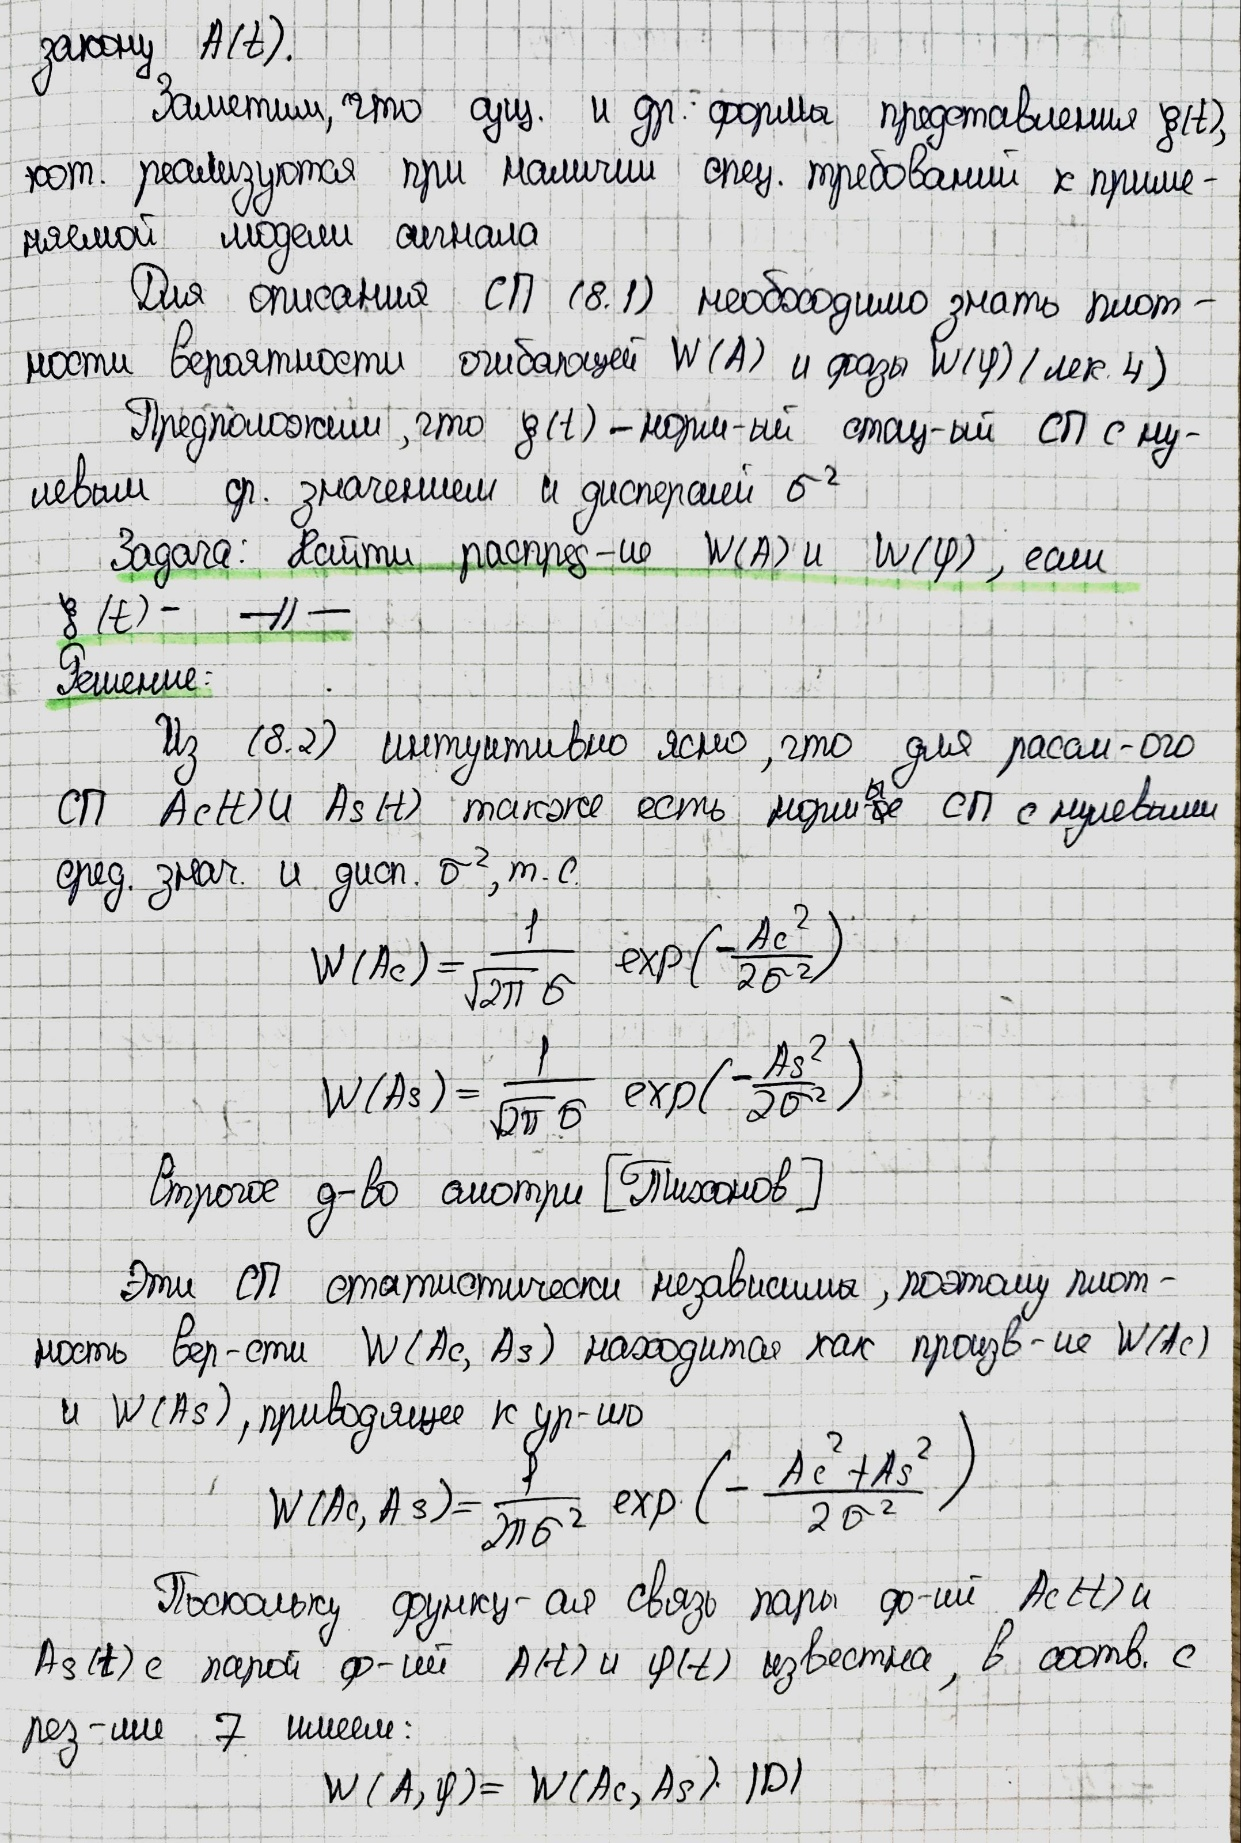 закону A(t).
Заметим, что сущ. и др. формы представления ξ(t),
кот. реализуются при наличии спец. требований к приме-
няемой модели сигнала
Для описания СП (8.1) необходимо знать плот-
ности вероятности огибающей W(A) и фазы W(φ) (лек. 4)
Предположим, что ξ(t) – норм-ый стац-ый СП с ну-
левым ср. значением и дисперсией σ²
Задача: Найти распред-ие W(A) и W(φ), если
ξ(t) – —//—
Решение:
Из (8.2) интуитивно ясно, что для рассм-ого
СП Ac(t) и As(t) также есть норм-ые СП с нулевыми
сред. знач. и дисп. σ², т.е.
W(Ac) = 1/(√2π σ) exp(-Ac²/2σ²)
W(As) = 1/(√2π σ) exp(-As²/2σ²)
Строгое д-во смотри [Тихонов]
Эти СП статистически независимы, поэтому плот-
ность вер-сти W(Ac, As) находится как произв-ие W(Ac)
и W(As), приводящее к ур-ию
W(Ac, As) = 1/(2πσ²) exp(-(Ac² + As²)/2σ²)
Поскольку функц-ая связь пары ф-ий Ac(t) и
As(t) с парой ф-ий A(t) и φ(t) известна, в соотв. с
рез-ми 7 имеем:
W(A, φ) = W(Ac, As)·|D|